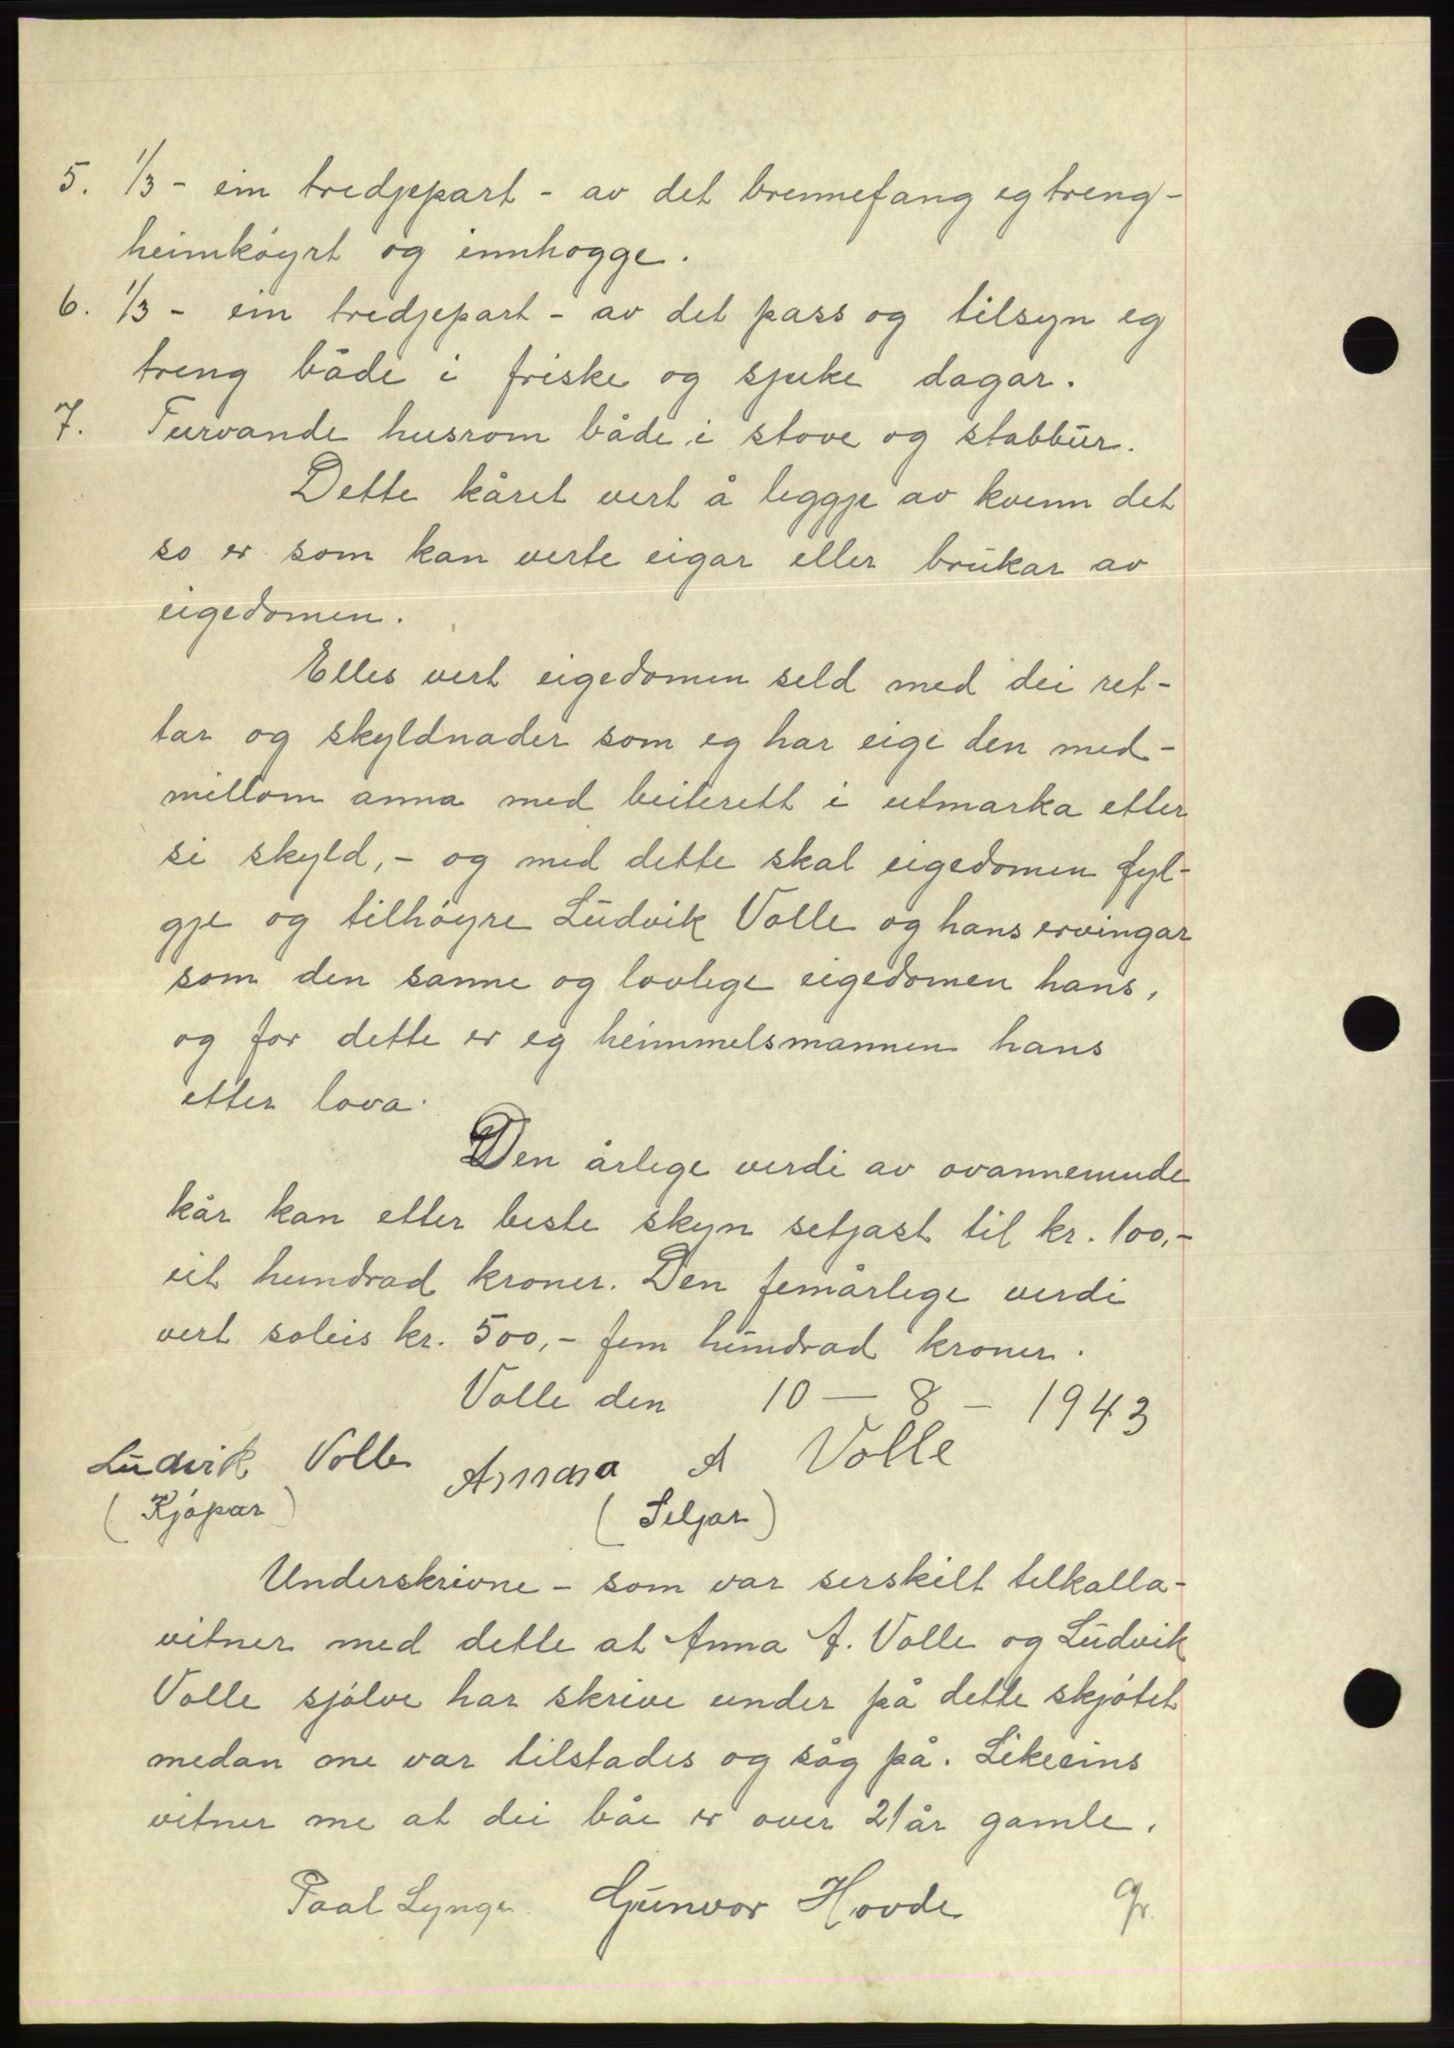 5. 1/3 - ein tredjepart - av det brennefang eg treng -
heimkøyrt og innhogge.
6. 1/3 - ein tredjepart - av det pass og tilsyn eg
treng både i friske og sjuke dagar.
7. Turvande husrom både i stove og stabbur.
Dette kåret vert å leggje av kvenn det
so er som kan verte eigar eller brukar av
eigedomen.
Elles vert eigedomen seld med dei ret-
tar og skyldnader som eg har eige den med-
millom anna med beiterett i utmarka etter
si skyld, - og med dette skal eigedomen fyl-
gje og tilhøyre Ludvik Volle og hans ervingar
som den sanne og lovlege eigedomen hans,
og for dette er eg heimmelsmannen hans
etter lova.
Den årlege verdi av ovannemnde
kår kan etter beste skyn setjast til kr. 100,-
eit hundrad kroner. Den femårlege verdi
vert soleis kr. 500,- fem hundrad kroner.
Volle den 10 - 8 - 1943
Ludvik Volle Anna A Volle
(Kjøpar) (Seljar)
Underskrivne - som var serskilt tilkalla -
vitner med dette at Anna A. Volle og Ludvik
Volle sjølve har skrive under på dette skjøtet
medan me var tilstades og såg på. Likeeins
vitner me at dei båe er over 21 år gamle.
Paal Lynge. Gunvor Hovde